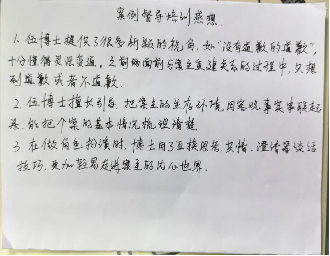 案例督导培训感想
1. 位博士提供了很多新颖的视角,如"没有道歉的道歉",
十分值得灵活变通,之前的面前与案主直建关系的过程中,只想
到道歉或者不道歉.
2. 位博士擅长引导 把案主的生态环境,用客观事实串联起
来.能把个案的基本情况梳理清楚
3. 在做角色扮演时,博士用了互换思考、共情、澄清等谈话
技巧,更加轻易走进案主的内心世界.